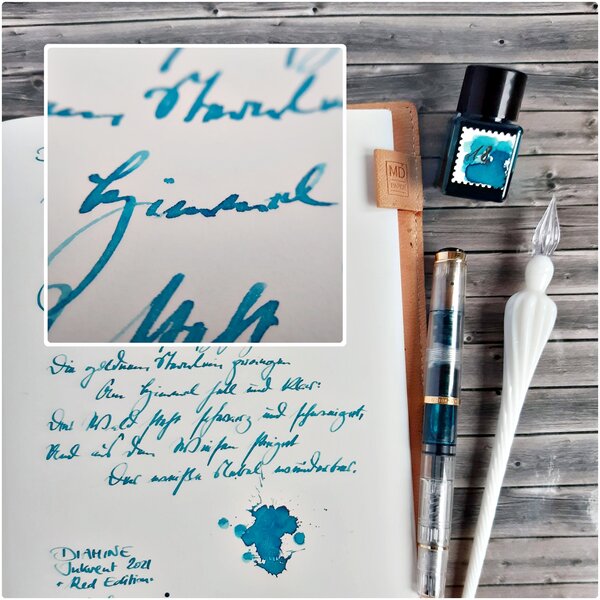 Sternlein
Himmel
steht
MD
PAPER
Die goldnen Sternlein prangen
Am Himmel hell und klar:
Der Wald steht schwarz und schweiget,
Und aus den Wiesen steiget
Der weiße Nebel wunderbar.
DIAMINE
Inkvent 2021
- Red Edition -